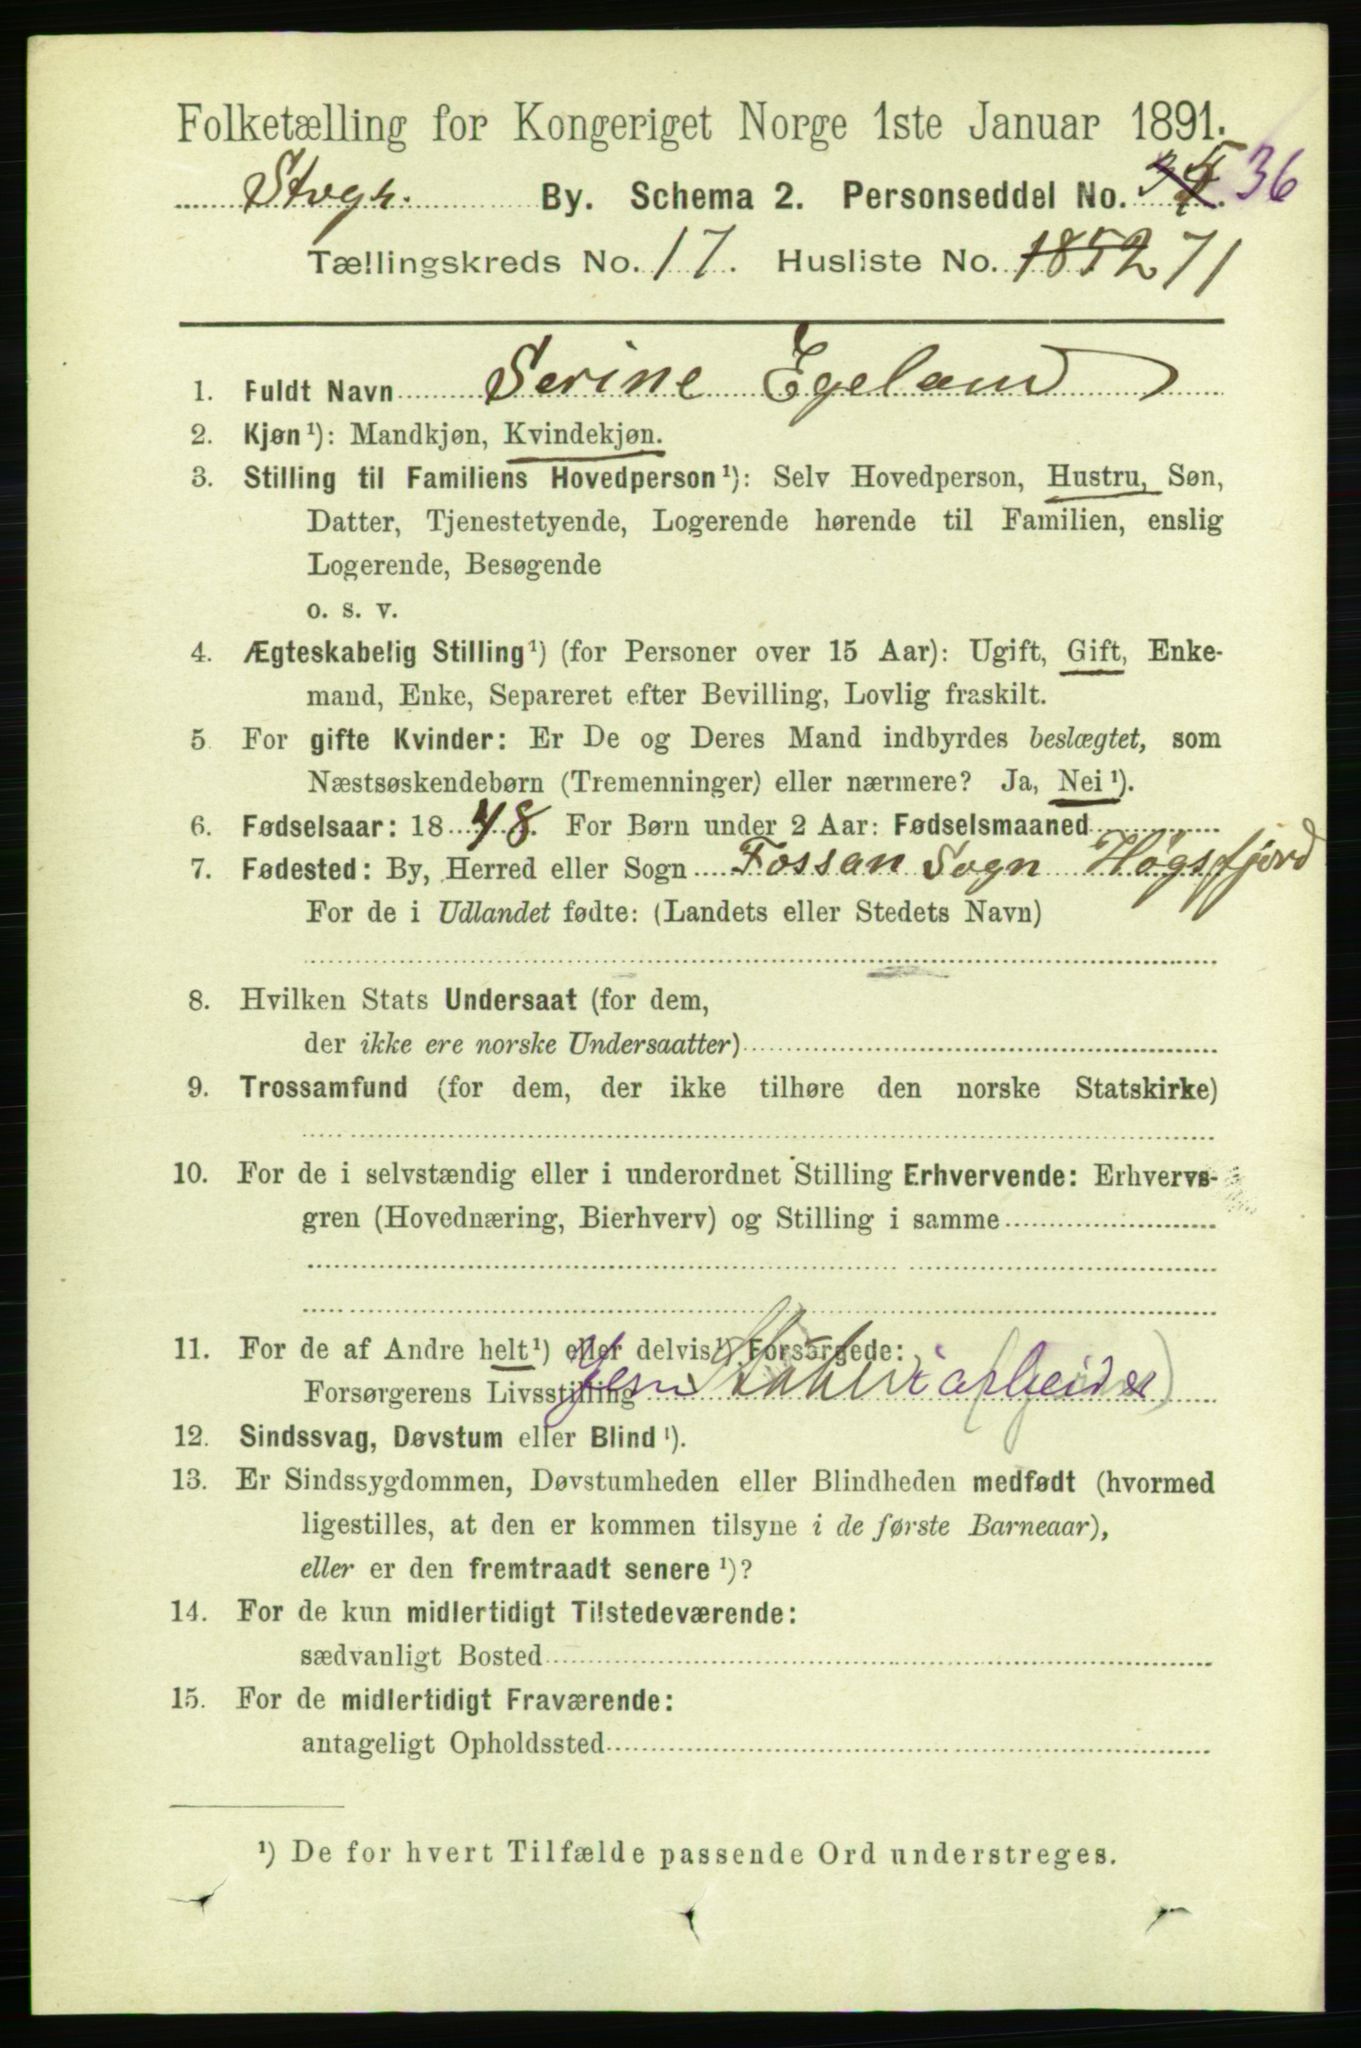 Folketælling for Kongeriget Norge 1ste Januar 1891.
Stvgr. By. Schema 2. Personseddel No. 36
Tællingskreds No. 17. Husliste No. 1852 71
1. Fuldt Navn Serine Egeland
2. Kjøn¹): Mandkjøn, Kvindekjøn.
3. Stilling til Familiens Hovedperson¹): Selv Hovedperson, Hustru, Søn,
Datter, Tjenestetyende, Logerende hørende til Familien, enslig
Logerende, Besøgende
o. s. v.
4. Ægteskabelig Stilling¹) (for Personer over 15 Aar): Ugift, Gift, Enke-
mand, Enke, Separeret efter Bevilling, Lovlig fraskilt.
5. For gifte Kvinder: Er De og Deres Mand indbyrdes beslægtet, som
Næstsøskendebørn (Tremenninger) eller nærmere? Ja, Nei¹).
6. Fødselsaar: 1848. For Børn under 2 Aar: Fødselsmaaned
7. Fødested: By, Herred eller Sogn Fossan Sogn Høgsfjord
For de i Udlandet fødte: (Landets eller Stedets Navn)
8. Hvilken Stats Undersaat (for dem,
der ikke ere norske Undersaatter)
9. Trossamfund (for dem, der ikke tilhøre den norske Statskirke)
10. For de i selvstændig eller i underordnet Stilling Erhvervende: Erhvervs-
gren (Hovednæring, Bierhverv) og Stilling i samme
11. For de af Andre helt¹) eller delvis¹) Forsørgede:
Forsørgerens Livsstilling Jernstøberiarbeider
12. Sindssvag, Døvstum eller Blind¹).
13. Er Sindssygdommen, Døvstumheden eller Blindheden medfødt (hvormed
ligestilles, at den er kommen tilsyne i de første Barneaar),
eller er den fremtraadt senere¹)?
14. For de kun midlertidigt Tilstedeværende:
sædvanligt Bosted
15. For de midlertidigt Fraværende:
antageligt Opholdssted
¹) De for hvert Tilfælde passende Ord understreges.